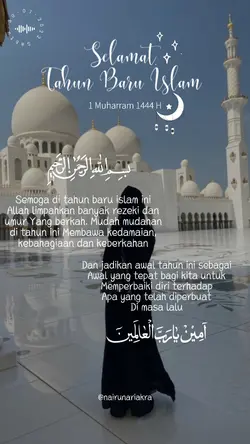 Selamat
Tahun Baru Islam
1 Muharram 1444 H
بسم الله الرحمن الرحيم
Semoga di tahun baru islam ini
Allah limpahkan banyak rezeki dan
umur Yang berkah. Mudah mudahan
di tahun ini Membawa kedamaian,
kebahagiaan dan keberkahan
Dan jadikan awal tahun ini sebagai
Awal yang tepat bagi kita untuk
Memperbaiki diri terhadap
Apa yang telah diperbuat
Di masa lalu
آمِيْنَ يَارَبَّ الْعَالَمِيْنَ
@nairunariakra